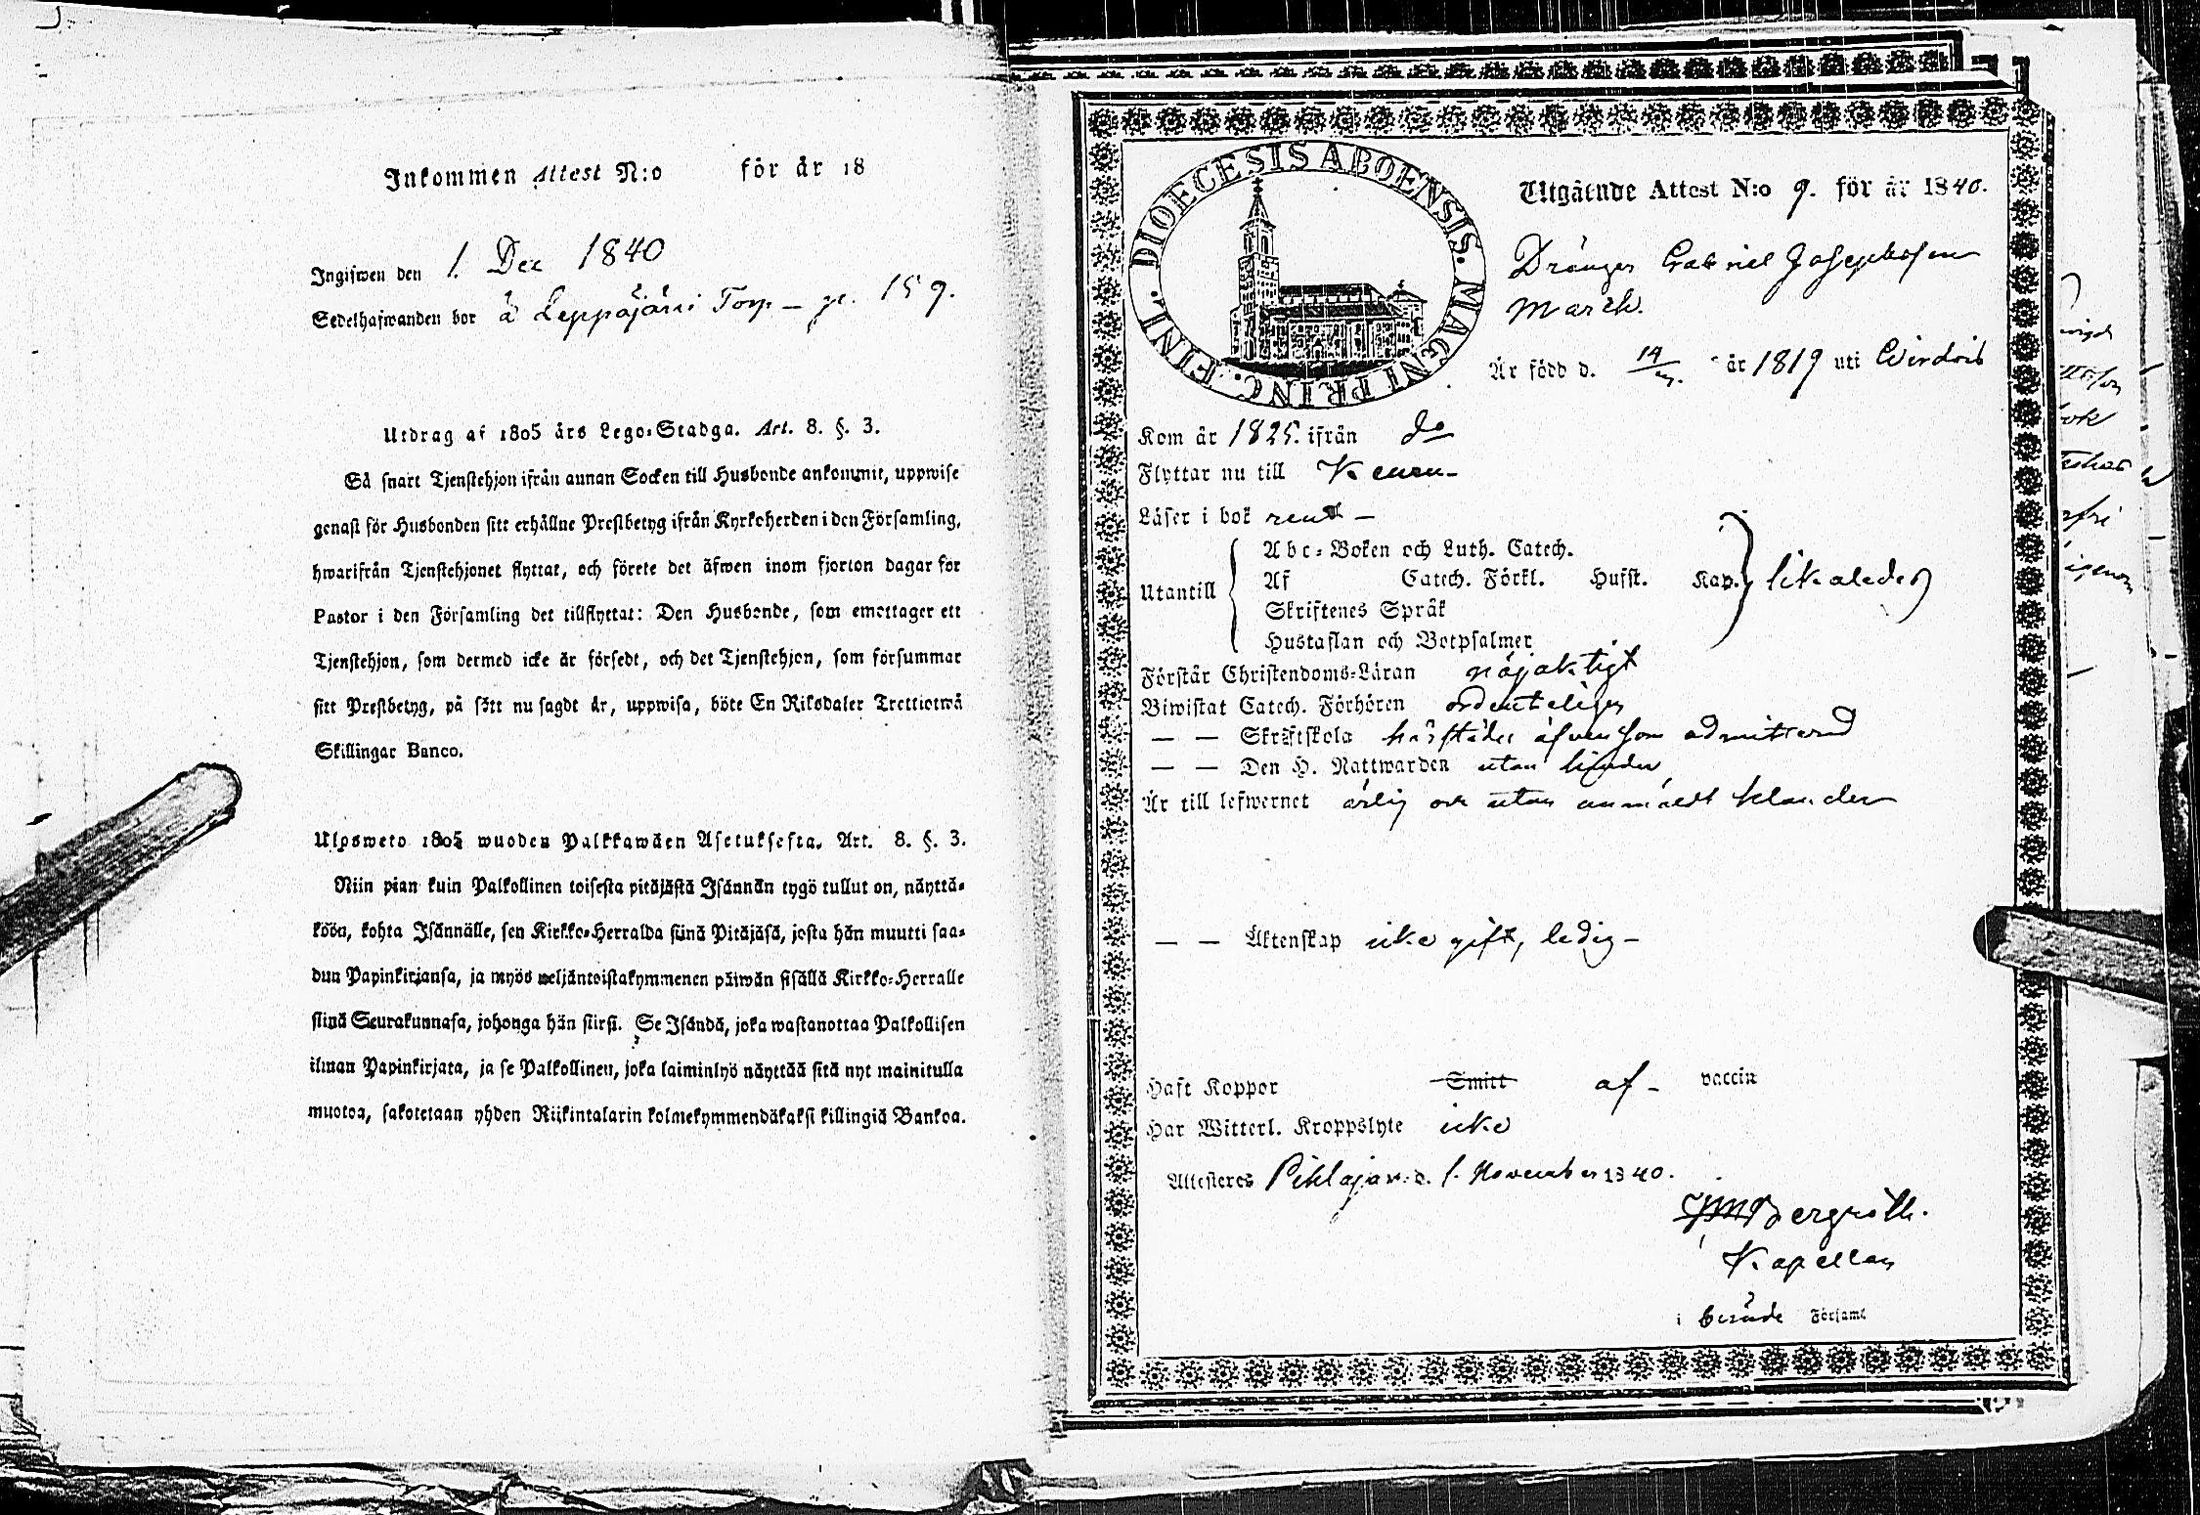 Inkommen Attest N:o för år 18
Ingifwen den 1. Dec 1840
Sedelhafwanden bor å Leppäjärvi Torp – p. 159.
Utdrag af 1805 års Lego-Stadga. Art. 8. §. 3.
Så snart Tjenstehjon ifrån annan Socken till Husbonde ankommit, uppwise
genast för Husbonden sitt erhållne Prestbetyg ifrån Kyrkoherden i den Församling,
hwarifrån Tjenstehjonet flyttat, och förete det äfwen inom fjorton dagar för
Pastor i den Församling det tillflyttat: Den Husbonde, som emottager ett
Tjenstehjon, som dermed icke är försedt, och det Tjenstehjon, som försummar
sitt Prestbetyg, på sätt nu sagdt är, uppwisa, böte En Riksdaler Trettiotwå
Skillingar Banco.
Ulosweto 1805 wuoden Palkkawäen Asetuksesta. Art. 8. §. 3.
Niin pian kuin Palkollinen toisesta pitäjästä Isännän tygö tullut on, näyttä-
köön, kohta Isännälle, sen Kirkko-Herralda siinä Pitäjäsä, josta hän muutti saa-
dun Papinkirjansa, ja myös neljäntoistakymmenen päiwän sisällä Kirkko-Herralle
siinä Seurakunnasa, johonga hän siirsi. Se Isändä, joka wastanottaa Palkollisen
ilman Papinkirjata, ja se Palkollinen, joka laiminlyö näyttää sitä nyt mainitulla
muotoa, sakotetaan yhden Riikintalarin kolmekymmendäkaksi killingiä Bankoa.
DIOECESIS ABOENSIS. MAGNI PRINC. FINL.
Utgående Attest N:o 9. för år 1840.
Drängen Gabriel Josephsson
March.
Är född d. 14/ år 1819 uti Wirdois
Kom år 1825. ifrån do
Flyttar nu till Keuru –
Läser i bok rent –
Utantill
Abc-Boken och Luth. Catech.
Af Catech. Förkl. Husst. Kap. likaledes
Skriftenes Språk
Hustaflan och Botpsalmer
Förstår Christendoms-Läran nöjaktigt
Biwistat Catech. Förhören ordenteligen
— — Skriftskola härstädes äfvensom admitterad
— — Den H. Nattwarden utan hinder
Är till lefwernet ärlig och utan anmäldt klander
— — Äktenskap icke gift, ledig –
Haft Koppor Smitt af – vaccin
Har Witterl. Kroppslyte icke
Attesteres Pihlajav. d. 1. November 1840.
Bergroth.
Kapellan
i berörde Församl